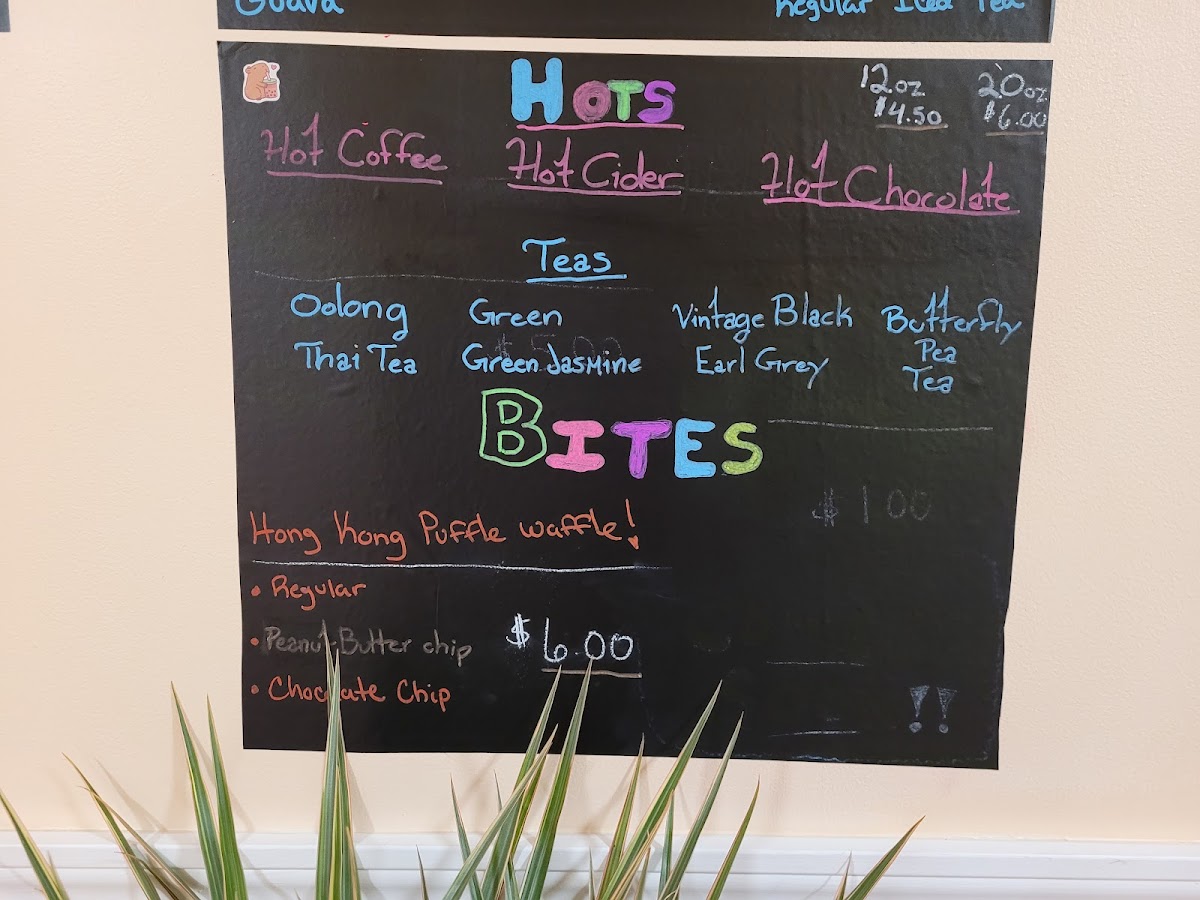 Guava
Regular Iced Tea
HOTS
12oz 20oz
$4.50 $6.00
Hot Coffee Hot Cider Hot Chocolate
Teas
Oolong Green Vintage Black Butterfly
Thai Tea Green Jasmine Earl Grey Pea
Tea
BITES
$1.00
Hong Kong Puffle waffle!
• Regular
• Peanut Butter chip $6.00
• Chocolate Chip
!!